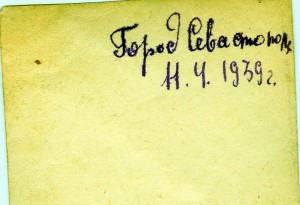 Город Севастополь
11. V. 1939 г.